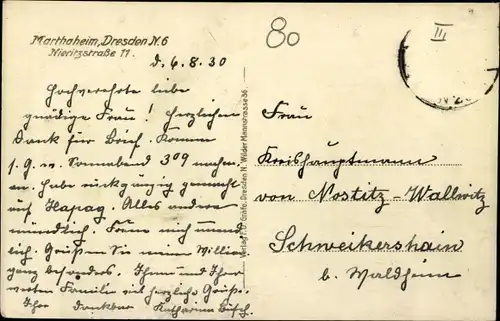 Marthaheim, Dresden N. 6
Nieritzstraße 11.
d. 6. 8. 30
Hochverehrte liebe
gnädige Frau! Herzlichen
Dank für Brief. Komme
Sonnabend 309
habe rückgängig gemacht
Hapag. Alles andere
mündlich. Freue mich
lich. Grüßen Sie
ganz besonders. Ihnen und Ihrer
Familie herzliche Grüße.
Ihre dankbar Katharina
Verlag Dresden N. Wilder Mannstrasse 36.
80
III
Frau
Kreishauptmann
von Nostitz-Wallwitz
Schweikershain
b. Waldheim